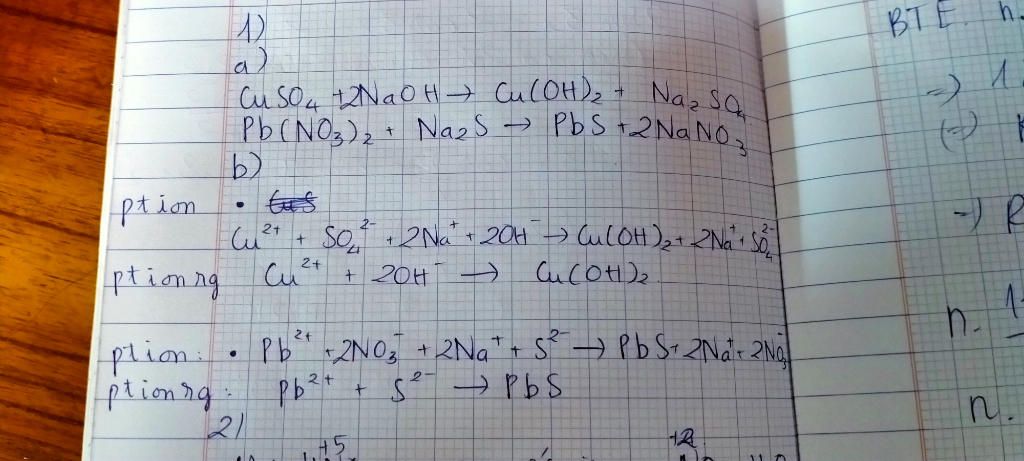 1)
a)
CuSO₄ + 2NaOH → Cu(OH)₂ + Na₂SO₄
Pb(NO₃)₂ + Na₂S → PbS + 2NaNO₃
b)
ption •
Cu²⁺ + SO₄²⁻ + 2Na⁺ + 2OH⁻ → Cu(OH)₂ + 2Na⁺ + SO₄²⁻
ptionrg Cu²⁺ + 2OH⁻ → Cu(OH)₂
ption: • Pb²⁺ + 2NO₃⁻ + 2Na⁺ + S²⁻ → PbS + 2Na⁺ + 2NO₃⁻
ptionrg: Pb²⁺ + S²⁻ → PbS
2)
+5 +2
BTE n.
=) 1
(=)
=)
n. 1
n.